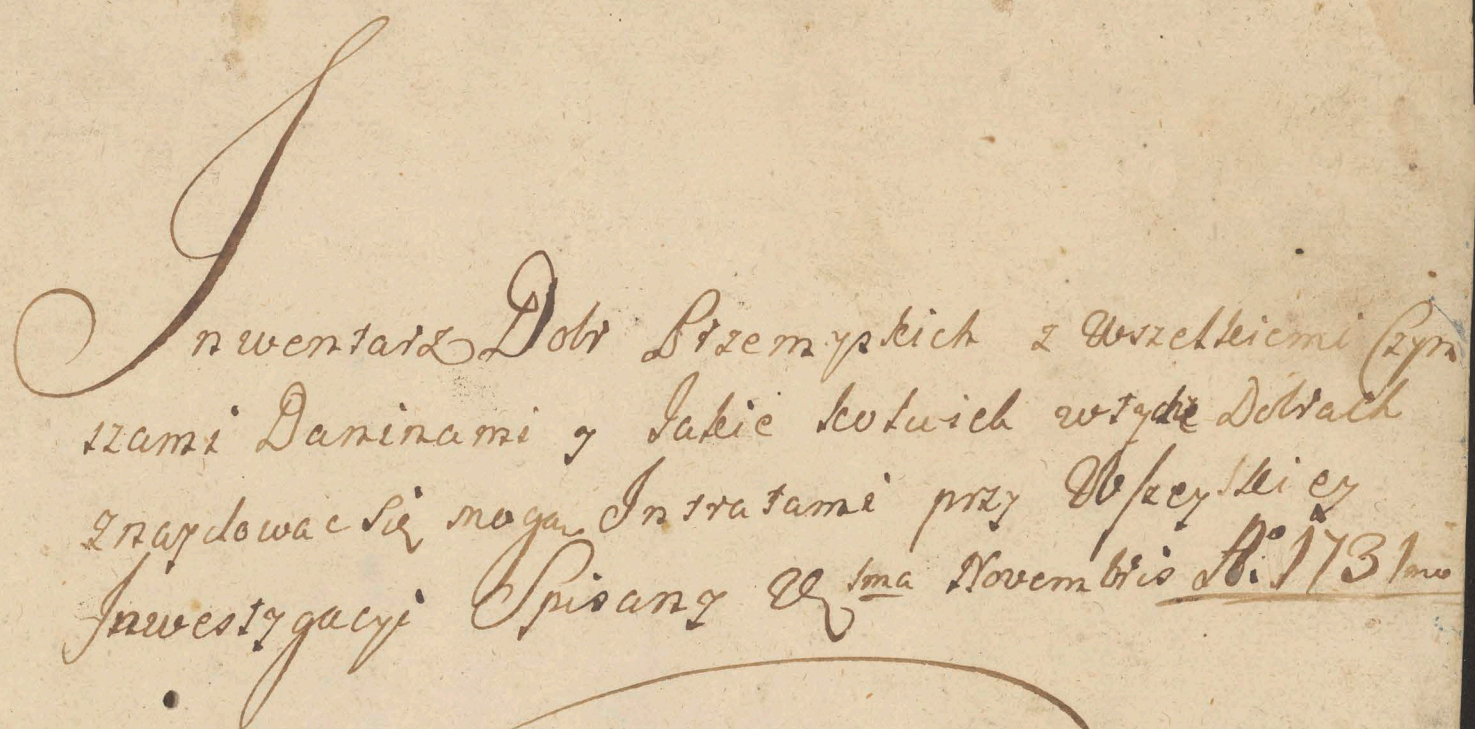 Inwentarz Dobr Przemyskich z Wszelkiemi Czyn
szami Daninami y Jakie kolwiek wtychże Dobrach
znaydować się mogą Intratami przy Wszeyſtkiey
Inwestygacyi Spisany 1ma Novembris Ao: 1731mo